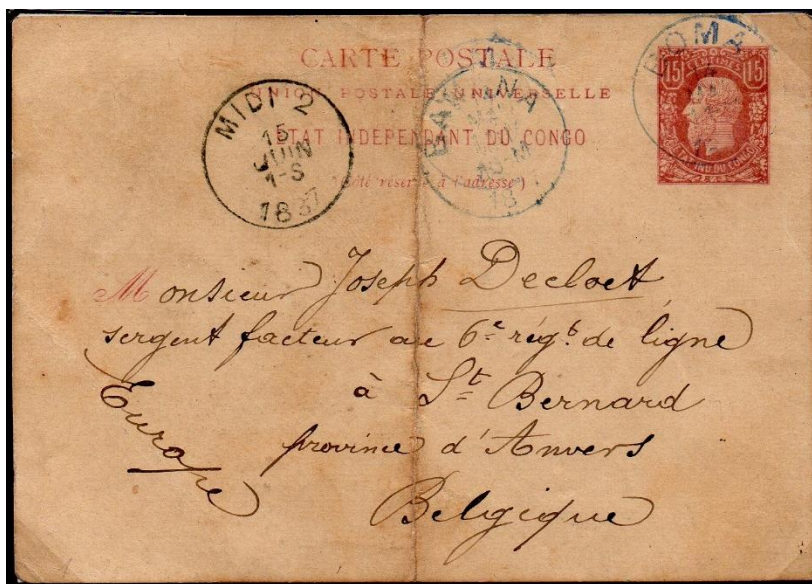 CARTE POSTALE
UNION POSTALE UNIVERSELLE
ÉTAT INDÉPENDANT DU CONGO
(Côté réservé à l'adresse)
15 CENTIMES 15
ÉTAT IND. DU CONGO
BOMA
BANANA
MIDI 2
15
JUIN
1-S
1887
Monsieur Joseph Decloet
sergent facteur au 6e régt de ligne
à St Bernard
province d'Anvers
Belgique
Europe